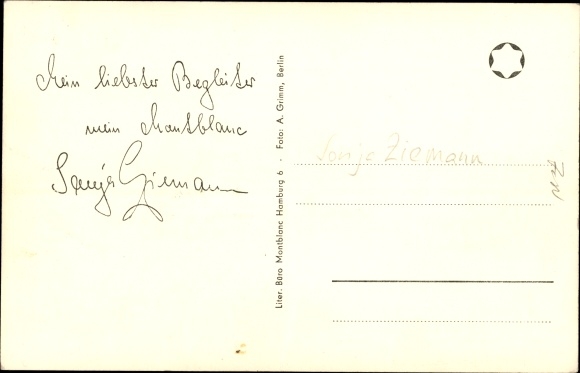 Mein liebster Begleiter
mein Montblanc
Sonja Ziemann
Liter. Büro Montblanc Hamburg 6 · Foto: A. Grimm, Berlin
Sonja Ziemann